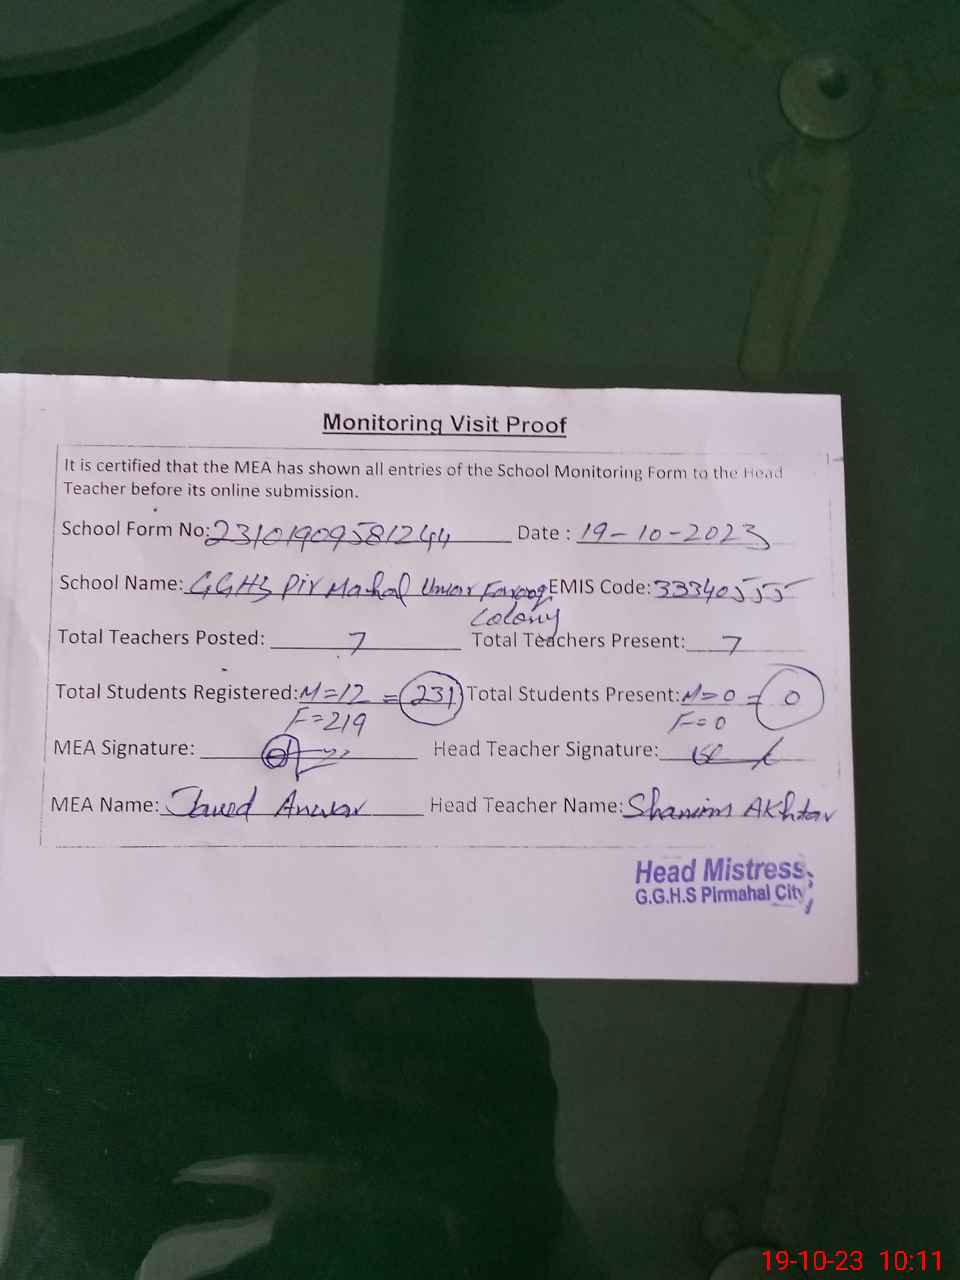 Monitoring Visit Proof
It is certified that the MEA has shown all entries of the School Monitoring Form to the Head
Teacher before its online submission.
School Form No: 23101909581244 Date : 19-10-2023
School Name: GGHS Pir Mahal Umar Farooq EMIS Code: 33340555
Colony
Total Teachers Posted: 7 Total Teachers Present: 7
Total Students Registered: M=12 = 231 Total Students Present: M=0 = 0
F=219 F=0
MEA Signature: Head Teacher Signature:
MEA Name: Javed Anwar Head Teacher Name: Shamim Akhtar
Head Mistress
G.G.H.S Pirmahal City
19-10-23 10:11